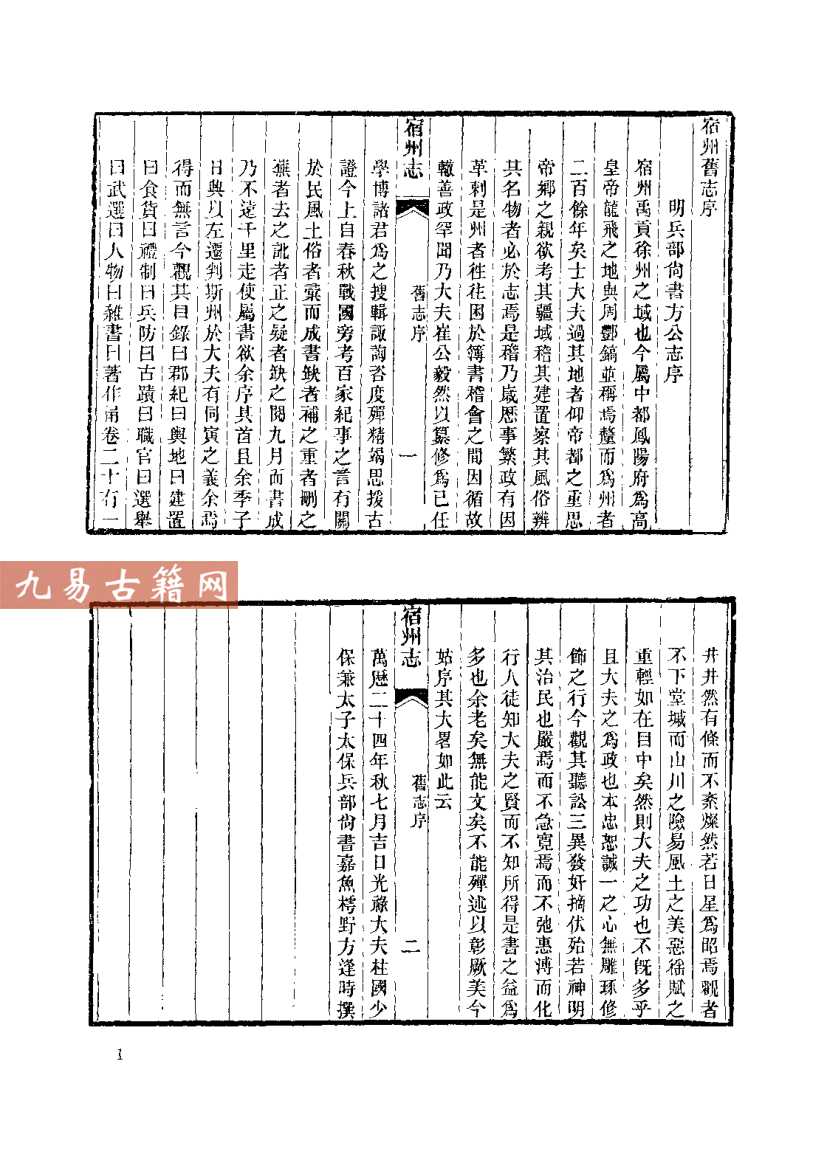 宿州舊志序
明兵部尙書方公志序
宿州禹貢徐州之域也今屬中都鳳陽府爲高
皇帝龍飛之地與周酆鎬並稱焉釐而爲州者
二百餘年矣士大夫過其地者仰帝都之重思
帝鄉之親欲考其疆域稽其建置察其風俗辨
其名物者必於志焉是稽乃歲歷事繁政有因
革刺是州者徃往困於簿書稽會之間因循故
轍善政罕聞乃大夫崔公毅然以纂修爲已任
宿州志
舊志序
一
學博諸君爲之搜輯諏詢咨度殫精竭思援古
證今上自春秋戰國旁考百家紀事之言有關
於民風土俗者彚而成書缺者補之重者刪之
蕪者去之訛者正之疑者缺之閱九月而書成
乃不遠千里走使屬書欲余序其首且余季子
日與以左遷判斯州於大夫有同寅之義余焉
得而無言今觀其目錄曰郡紀曰輿地曰建置
曰食貨曰禮制曰兵防曰古蹟曰職官曰選舉
曰武選曰人物曰雜書曰著作甫卷二十有一
井井然有條而不紊燦然若日星爲昭焉觀者
不下堂堿而山川之險易風土之美惡徭賦之
重輕如在目中矣然則大夫之功也不旣多乎
且大夫之爲政也本忠恕誠一之心無雕琢修
飾之行今觀其聽訟三異發奸摘伏殆若神明
其治民也嚴焉而不急寬焉而不弛惠溥而化
行人徒知大夫之賢而不知所得是書之益爲
多也余老矣無能文矣不能殫述以彰厥美今
姑序其大畧如此云
宿州志
舊志序
二
萬曆二十四年秋七月吉日光祿大夫柱國少
保兼太子太保兵部尙書嘉魚樗野方逢時撰
九易古籍网
1